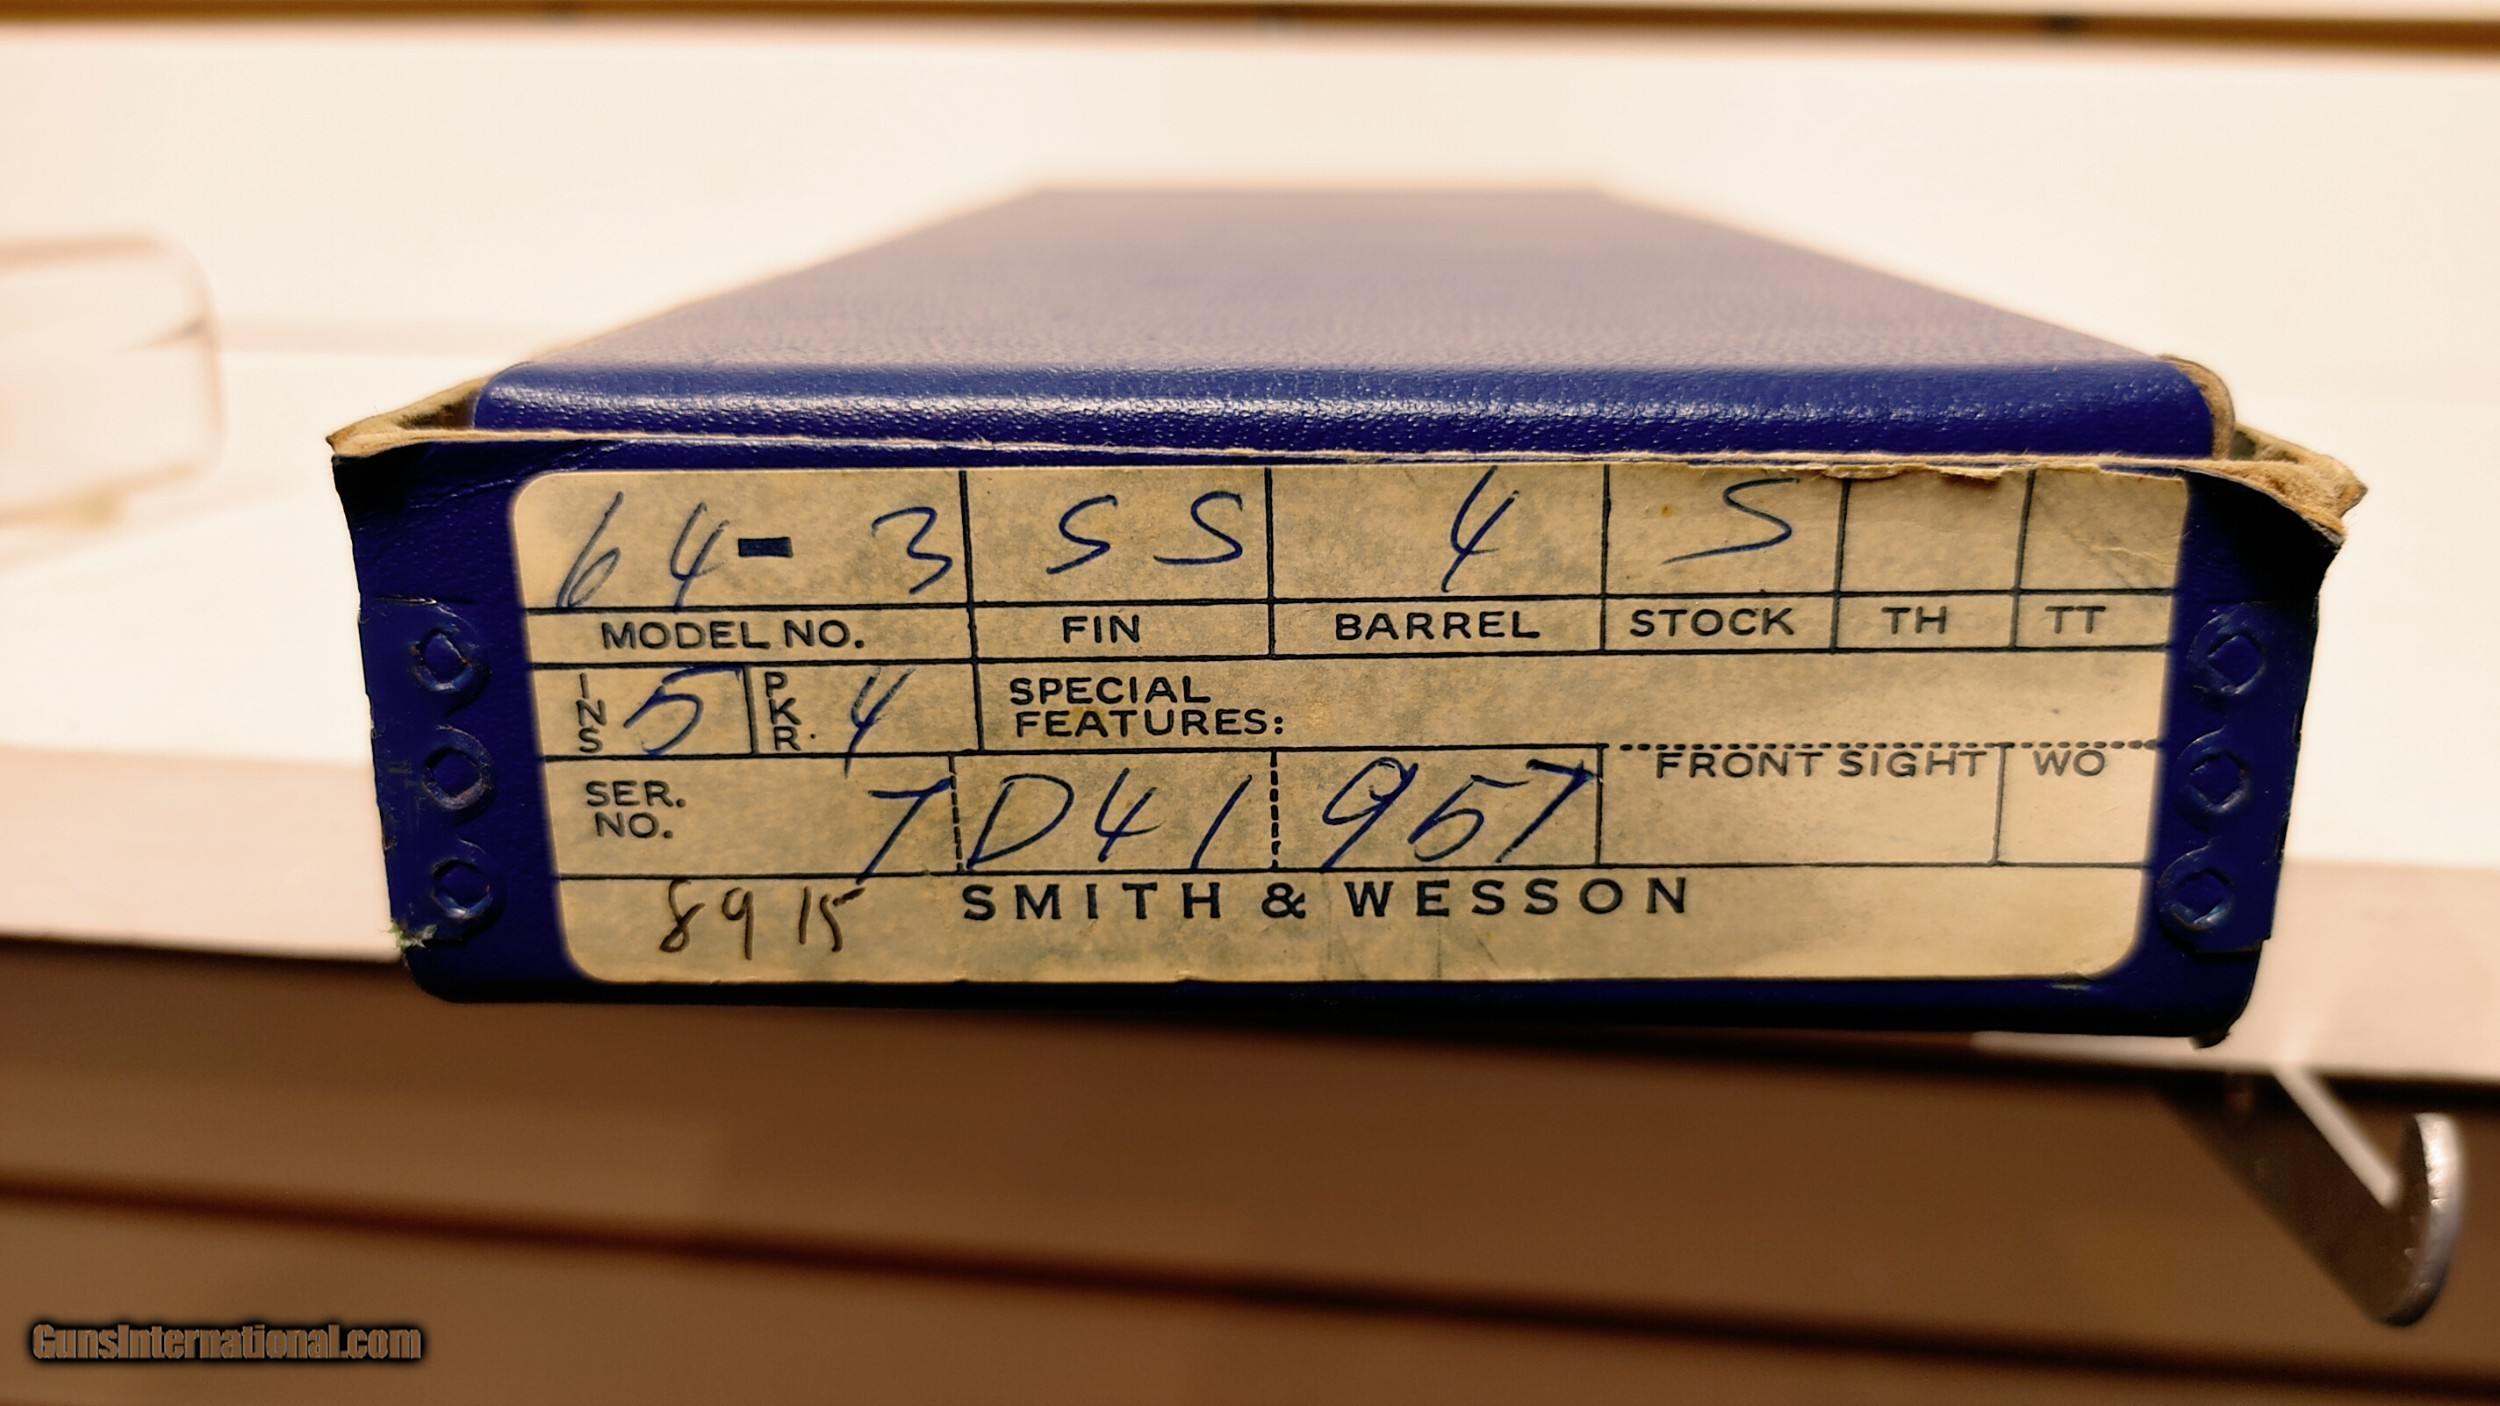 64-3 SS 4 S
MODEL NO. FIN BARREL STOCK TH TT
INS 5 PKR. 4 SPECIAL
FEATURES:
FRONT SIGHT WO
SER.
NO. TD41 957
8915 SMITH & WESSON
GunsInternational.com